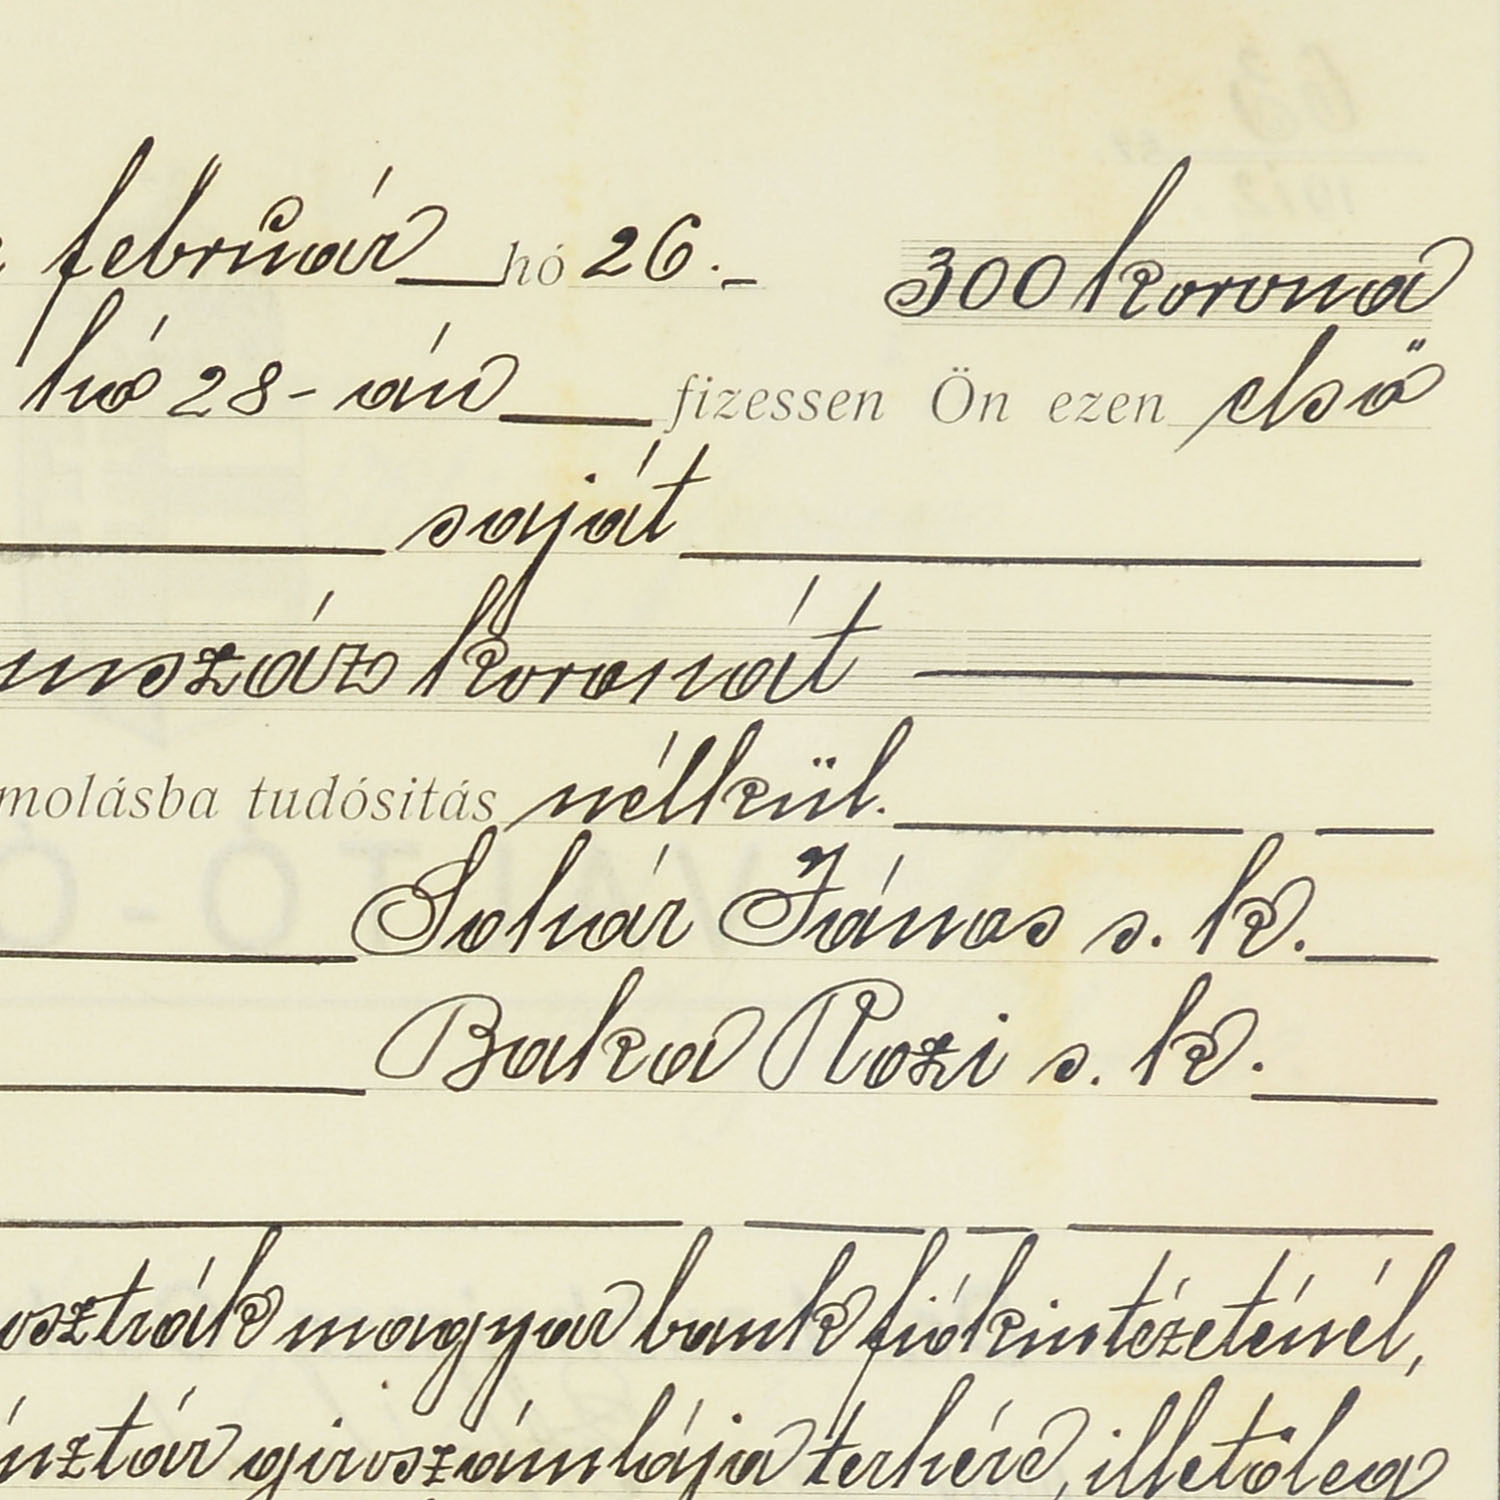 február hó 26.- 300 korona
hó 28-án fizessen Ön ezen első
saját
mszáz koronát
molásba tudósitás nélkül.
Sohár János s. k.
Baka Rozi s. k.
osztrák magyar bank fiókintézeténél,
nztár giroszámlája terhére, illetőleg